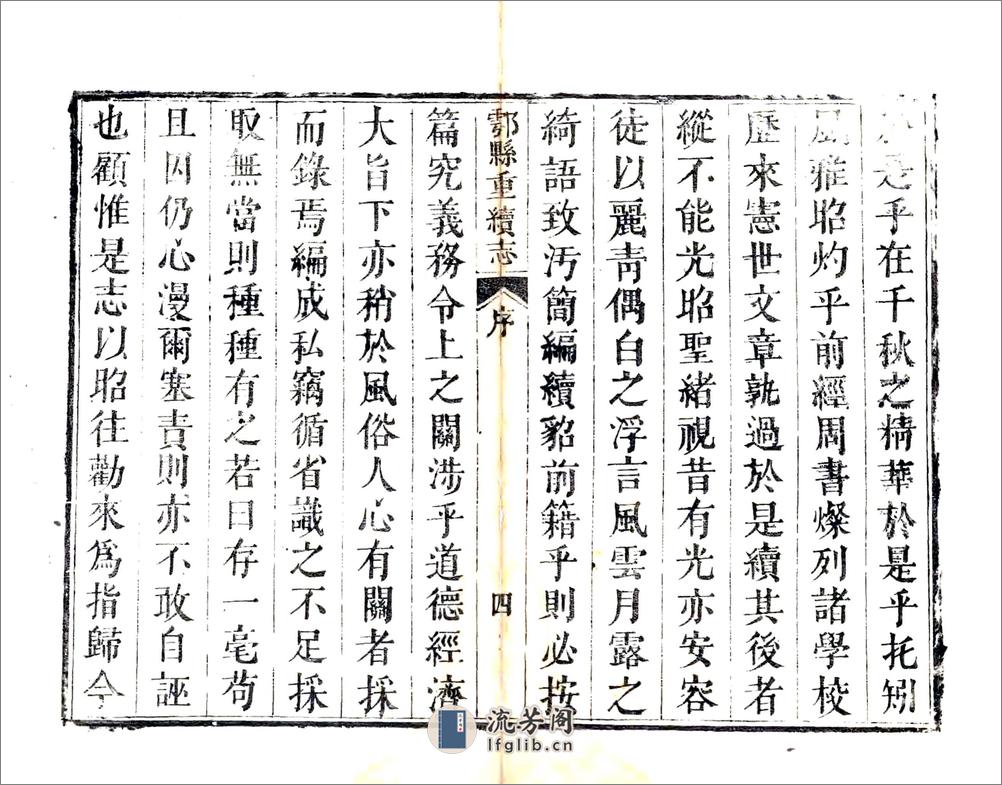 於是乎在千秋之精華於是乎托矧
風雅昭灼乎前經周書燦列諸學校
歷來憲世文章孰過於是續其後者
縱不能光昭聖緒視昔有光亦安容
徒以麗青偶白之浮言風雲月露之
綺語致汚簡編續貂前籍乎則必按
鄠縣重續志
序
四
篇究義務令上之關涉乎道德經濟
大旨下亦稍於風俗人心有關者採
而錄焉編成私竊循省識之不足採
取無當則種種有之若曰存一毫苟
且因仍心漫爾塞責則亦不敢自誣
也顧惟是志以昭往勸來爲指歸今
流芳阁
lfglib.cn